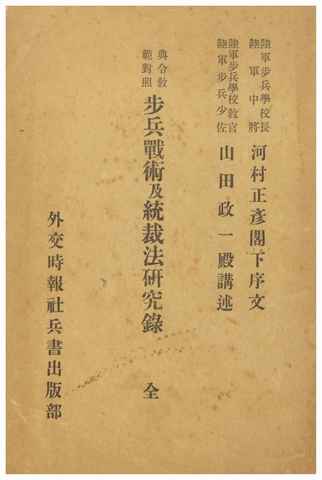 陸軍步兵學校長
陸軍中將
河村正彥閣下序文
陸軍步兵學校教官
陸軍步兵少佐
山田政一殿講述
典令教
範對照
步兵戰術及統裁法研究錄 全
外交時報社兵書出版部